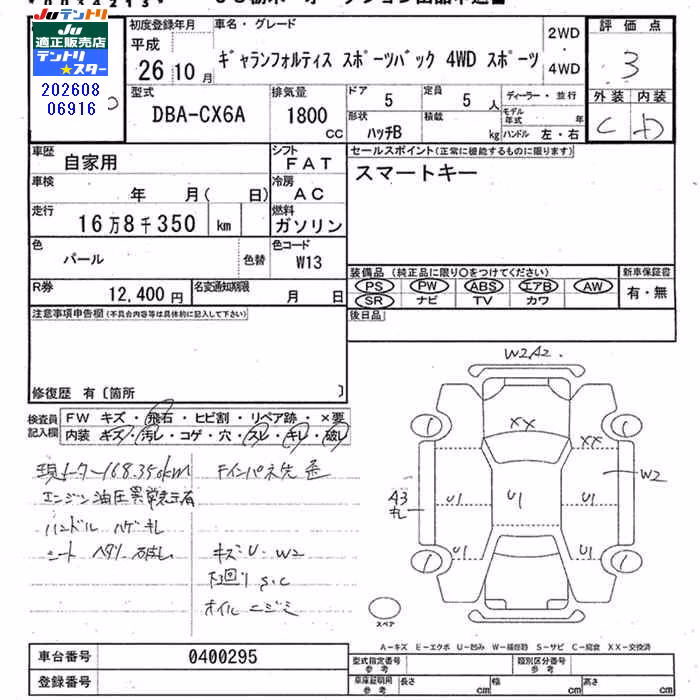 JUテントリ
JU
適正販売店
テントリ
★スター
202608
06916
初度登録年月
平成
26 10 月
車名・グレード
ギャランフォルティス スポーツバック 4WD スポーツ
2WD
・
4WD
評価
3
外装 内装
C D
型式
DBA-CX6A
排気量
1800
CC
ドア
5
定員
5 人
ディーラー・並行
形状
ハッチB
積載
kg
モデル年式 年
ハンドル 左・右
車歴
自家用
シフト
FAT
セールスポイント(正常に機能するものに限ります)
スマートキー
車検
年 月( 日)
冷房
AC
走行
16万8千350 km
燃料
ガソリン
色
パール
色替
色コード
W13
装備品 (純正品に限り○をつけてください)
新車保証書
PS PW ABS エアB AW
有・無
SR ナビ TV カワ
R券
12,400 円
名変通知期限
月 日
後日品
注意事項申告欄(不具合内容等は具体的に記入して下さい)
修復歴 有〔箇所 〕
検査員
記入欄
FW キズ・飛石・ヒビ割・リペア跡・×要
内装 キズ・汚レ・コゲ・穴・スレ・キレ・破レ
現メーター168.350km
エンジン油圧異常表示有
ハンドル ハゲ キレ
シート ヘタリ 破レ
Fインパネ先 歪
キズ・U・W2
下回り S.C
オイル ニジミ
W2A2.
XX
XX
W2
A3
U1
U1
U1
U1
U1
スペア
A-キズ E-エクボ U-凹み W-補修跡 S-サビ C-腐食 XX-交換済
車台番号
0400295
登録番号
型式指定番号
参考
類別区分番号
参考
車庫証明用
参考
長さ cm
幅 cm
高さ cm